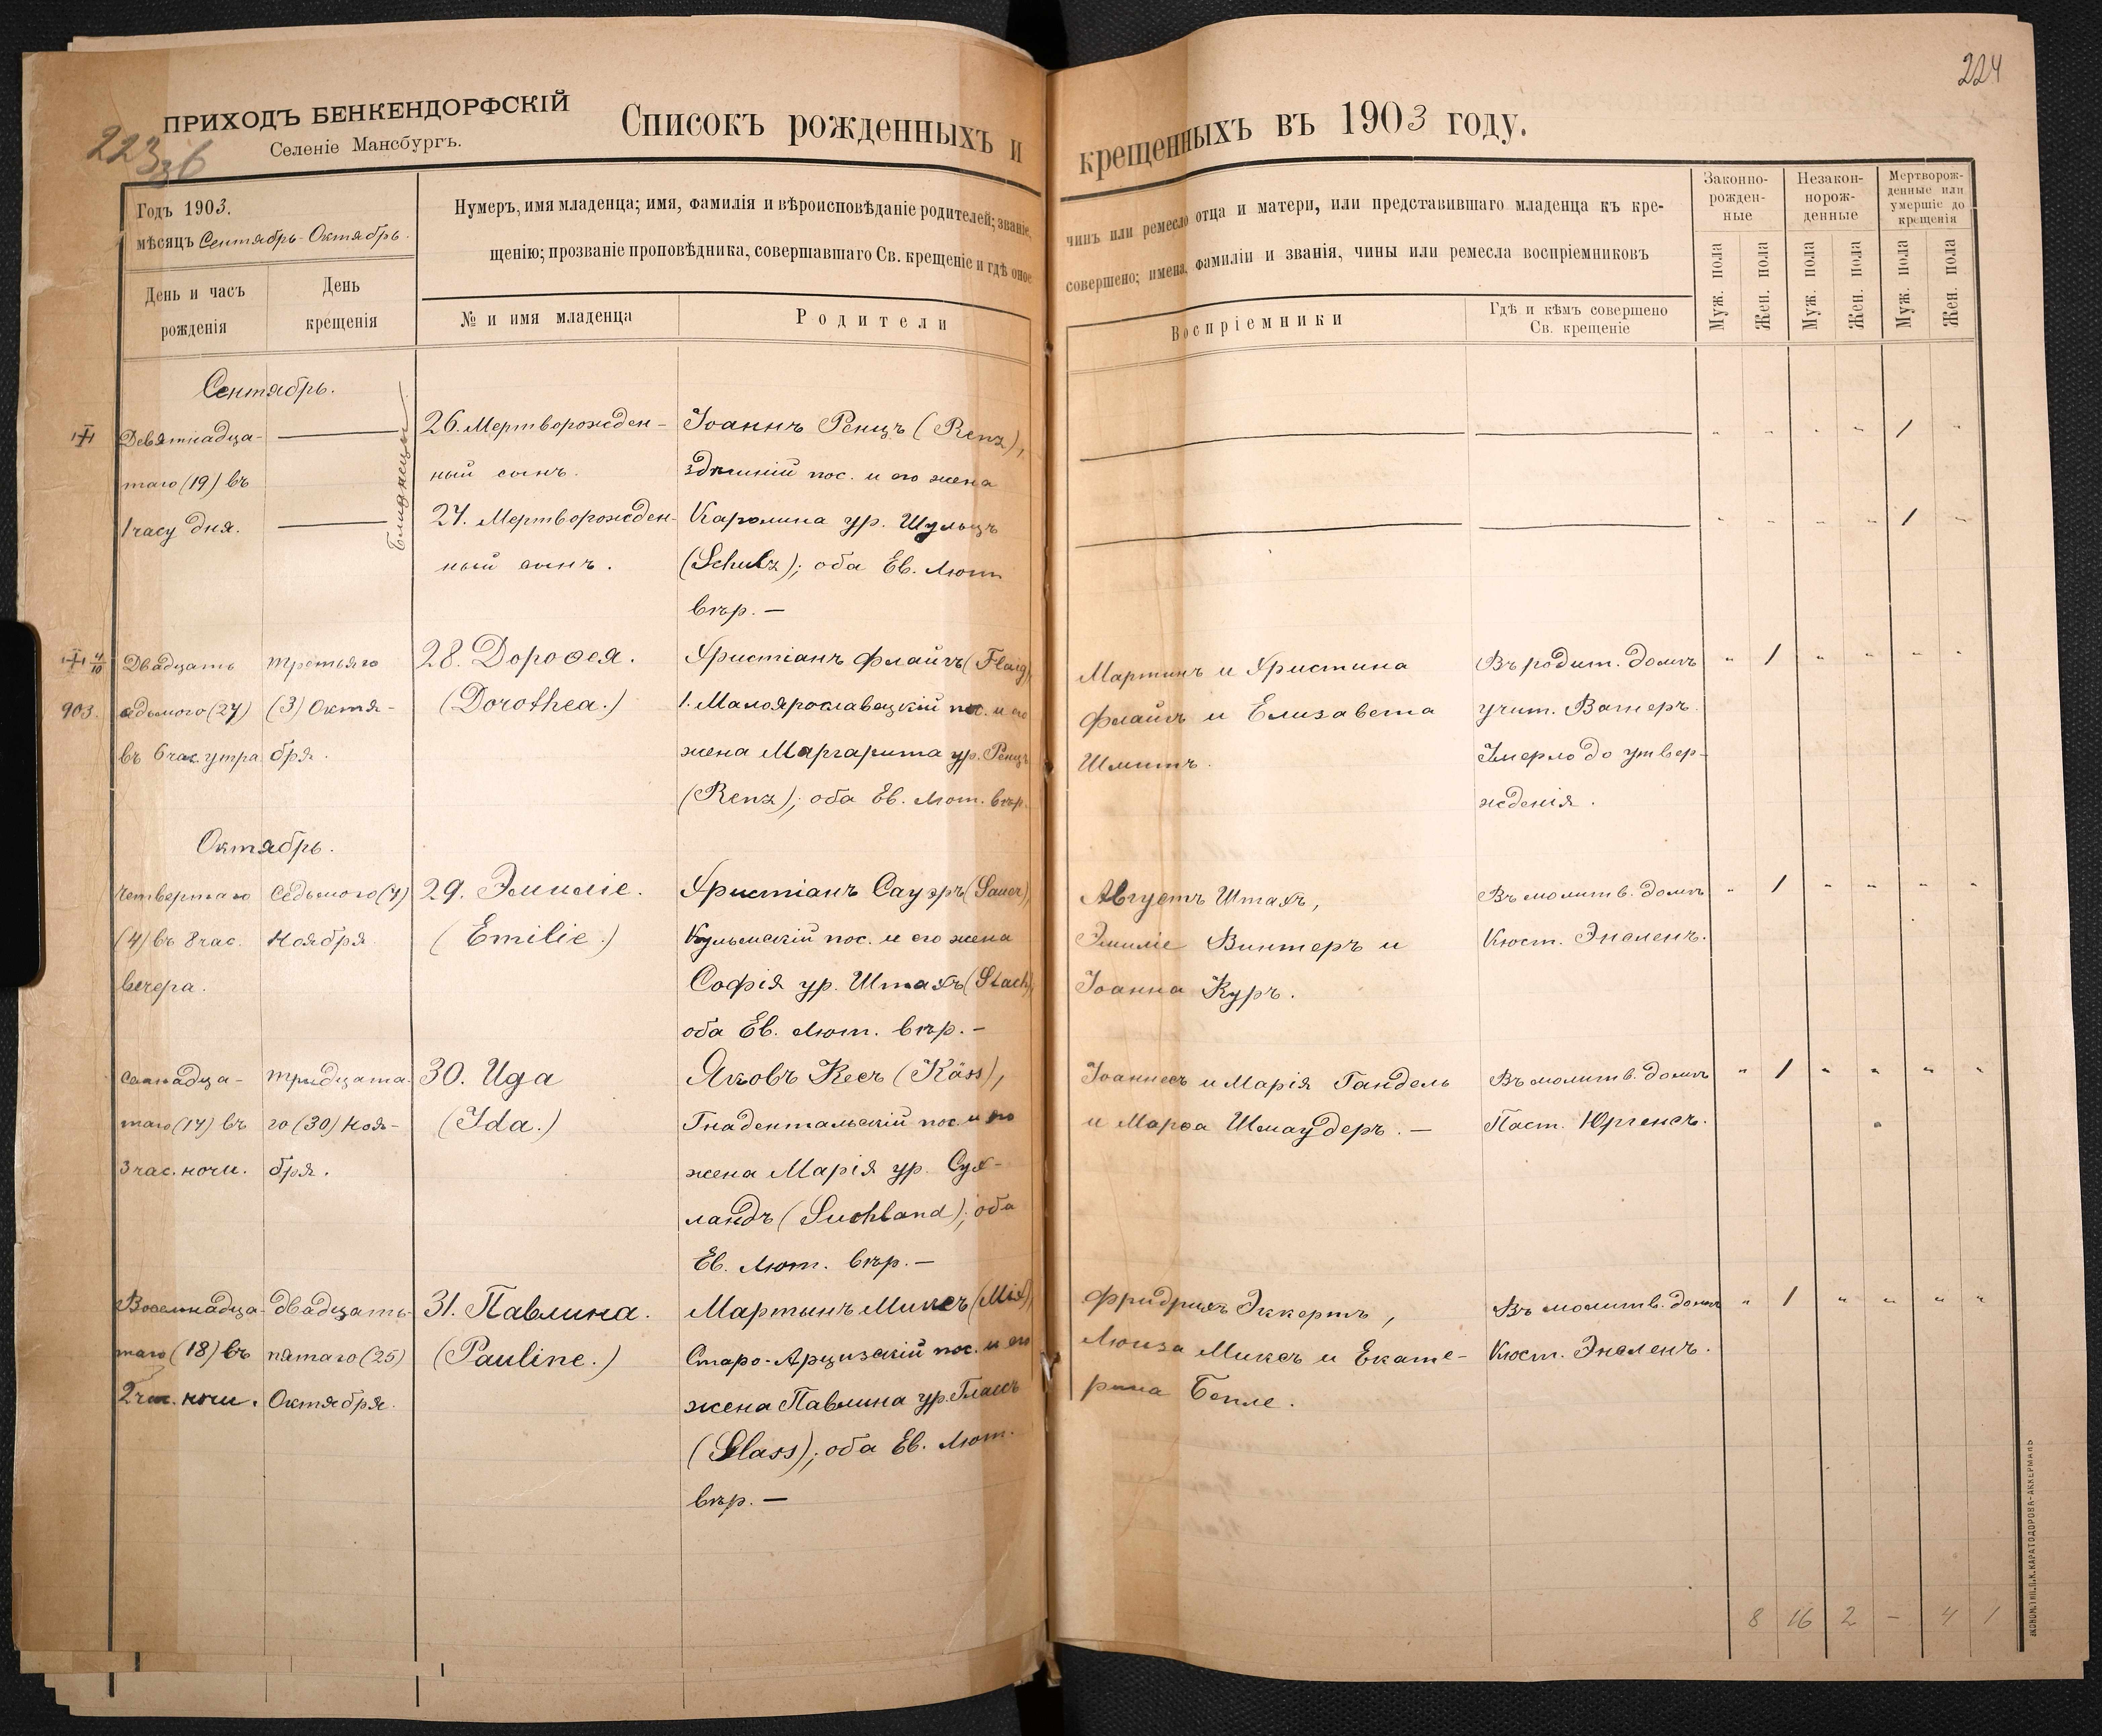 224
ПРИХОДЪ БЕНКЕНДОРФСКІЙ
Селеніе Мансбургъ.
223 зв
Списокъ рожденныхъ и крещенныхъ въ 1903 году.
Годъ 1903.
мѣсяцъ Сентябрь-Октябрь.
День и часъ рожденія
День крещенія
Нумеръ, имя младенца; имя, фамилія и вѣроисповѣданіе родителей; званіе, чинъ или ремесло отца и матери, или представившаго младенца къ кре-
щенію; прозваніе проповѣдника, совершавшаго Св. крещеніе и гдѣ оное совершено; имена, фамиліи и званія, чины или ремесла воспріемниковъ
№ и имя младенца
Родители
Воспріемники
Гдѣ и кѣмъ совершено Св. крещеніе
Законно-рожден-ные
Незакон-норож-денные
Мертворож-денные или умершіе до крещенія
Муж. пола
Жен. пола
Муж. пола
Жен. пола
Муж. пола
Жен. пола
Сентябрь.
Девятнадца-
таго (19) въ
1 часу дня.
Близнецы
26. Мертворожден-
ный сынъ.
27. Мертворожден-
ный сынъ.
Іоаннъ Ренцъ (Renz),
здѣшній пос. и его жена
Каролина ур. Шульцъ
(Schulz); оба Ев. Лют.
вѣр. —
1
1
4/10
903.
Двадцать
седьмого (27)
въ 6 час. утра
третьяго
(3) Октя-
бря.
28. Дороѳея.
(Dorothea.)
Христіанъ Флайгъ (Flaig),
1. Малоярославецкій пос. и его
жена Маргарита ур. Ренцъ
(Renz); оба Ев. Лют. вѣр.
Мартинъ и Христина
Флайгъ и Елизавета
Шмитъ.
Въ родит. домѣ
учит. Вагнеръ.
Умерло до утвер-
жденія.
1
Октябрь.
Четвертаго
(4) въ 8 час.
вечера.
Седьмого (7)
Ноября
29. Эмиліе.
(Emilie.)
Христіанъ Сауэръ (Sauer),
Кульмскій пос. и его жена
Софія ур. Штахъ (Stach),
оба Ев. Лют. вѣр. —
Августъ Штахъ,
Эмиліе Винтеръ и
Іоанна Куръ.
Въ молитв. домѣ
Кюст. Энсленъ.
1
семнадца-
таго (17) въ
3 час. ночи.
тридцата-
го (30) Ноя-
бря.
30. Ида
(Ida.)
Яковъ Кесъ (Käss),
Гнадентальскій пос. и его
жена Марія ур. Сух-
ландъ (Suchland); оба
Ев. Лют. вѣр. —
Іоаннесъ и Марія Гандель
и Марѳа Шмаудеръ. —
Въ молитв. домѣ
Паст. Юргенсъ.
1
Восемнадца-
таго (18) въ
2 час. ночи.
двадцать
пятаго (25)
Октября.
31. Павлина.
(Pauline.)
Мартынъ Миксъ (Mix),
Старо-Арцизскій пос. и его
жена Павлина ур. Гласъ
(Glass); оба Ев. Лют.
вѣр. —
Фридрихъ Эккертъ,
Люиза Миксъ и Екате-
рина Бепле.
Въ молитв. домѣ
Кюст. Энсленъ.
1
8 16 2 - 4 1